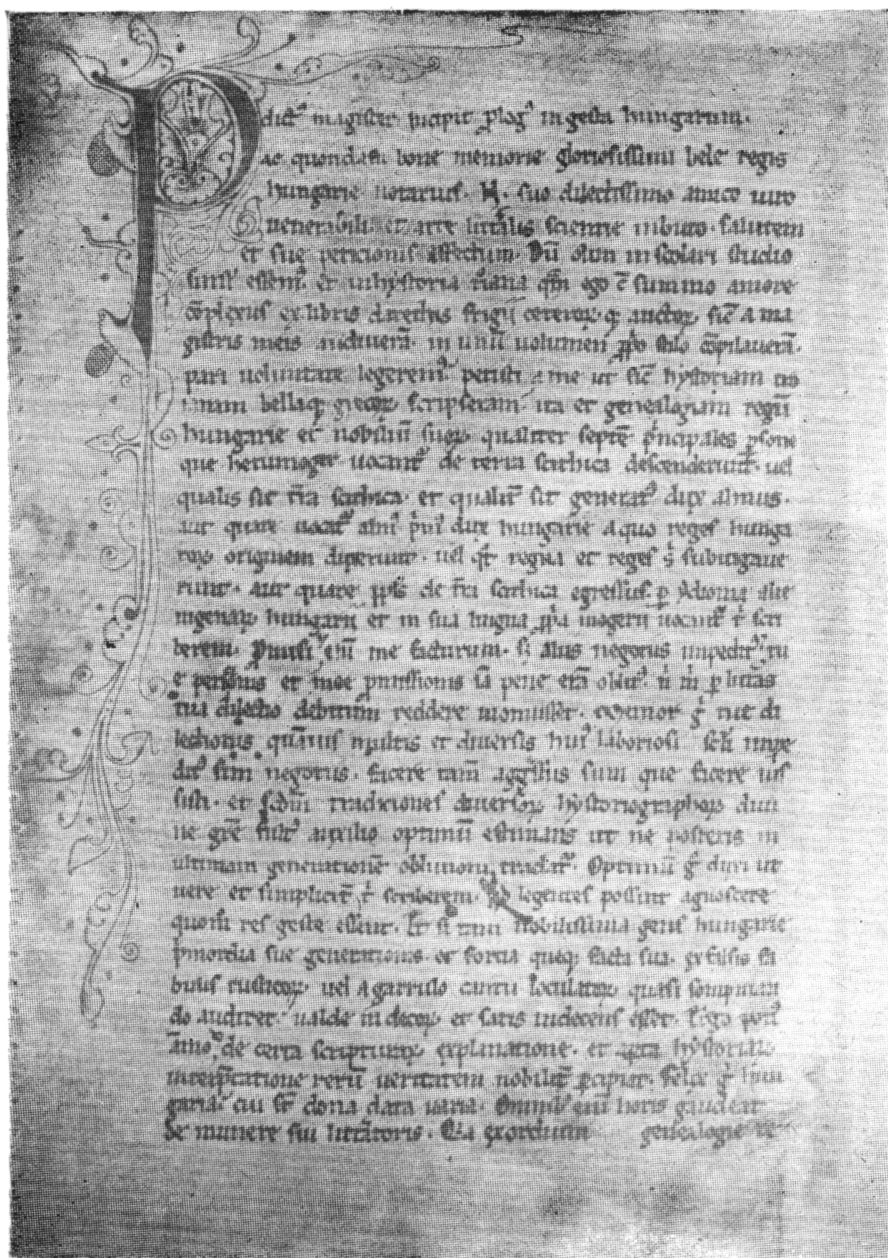 P dict᷒ magister incipit ꝓlog᷒ in gesta hungarum.
ac quondam bone memorie gloriosissimi bele regis
hungarie notarius. N. suo dilectissimo amico uiro
uenerabili et arte litt̄alis scientie inbuto. salutem
et sue peticionis effectum. Dū olim in scolari studio
simul essem᷒. et in hystoria t̄iana qm̄ ego summo amore
cōplexus ex libris daretis frigii ceteroꝝ qꝫ auctoꝝ. sic̄ a ma
gistris meis audiuerā. in unū uolumen ꝓprio stilo cōpilauerā.
pari uoluntate legerem᷒. petisti a me ut sic̄ hystoriam tro
ianam bellaqꝫ grecoꝝ scripseram. ita et genealogiam regū
hungarie et nobiliū suoꝝ. qualiter septē p̄ncipales ꝑsone
que hetumoger uocant᷒. de terra scithica descenderunt. uel
qualis sit t̄ra scithica. et qualit̄ sit generat᷒ dux almus.
aut quare uocat᷒ alm᷒ p̄m᷒ dux hungarie a quo reges hunga
roꝝ originem duxerunt. uel qͦt regna et reges sͥ subiugaue
runt. aut quare ppl̄s de t̄ra scithica egressus ꝑ ydioma alie
nigenaꝝ hungarii et in sua lingua ꝓpria mogerii uocant᷒ tͥ scri
berem. Promisi eni me facturum. sꝫ aliis negotiis impedit᷒. tu
e peticionis et mee promissionis iā pene erā oblit᷒. nͥ mͥ ꝑ litt̄as
tua dilectio debitum reddere monuisset. Memor gͥ tue di
lectionis quāuis multis et diuersis hui᷒ laboriosi sctīi impe
dit᷒ sim negotiis. facere tam̄ aggressus sum que facere ius
sisti. et sc̄dm traditiones diuersoꝝ hystoriographoꝝ diui
ne grē fult᷒ auxilio optimū estimans ut ne posteris in
ultimam generationē obliuioni tradat᷒. Optimū gͦ duxi ut
uere et simplicit̄ tͥ scriberem. qd̄ legentes possint agnoscere
quom̄ res geste essent. Et si tam nobilissima gens hungarie
p̄mordia sue generationis et fortia queqꝫ facta sua. ex falsis fa
bulis rusticoꝝ. uel a garrulo cantu ioculatoꝝ quasi sompnian
do audiret. ualde indecoꝝ et satis indecens esset. Ergo poti᷒
āmo᷒. de certa scripturaꝝ explanatione. et aꝑta hystoriaꝝ
interp̄tatione rerū ueritatem nobilit̄ ꝑcipiat. Felix gͥ hun
garia. cui sūt dona data uaria. Omnibꝫ eni horis gaudeat
de munere sui litt̄atoris. Quia exordium genealogie re